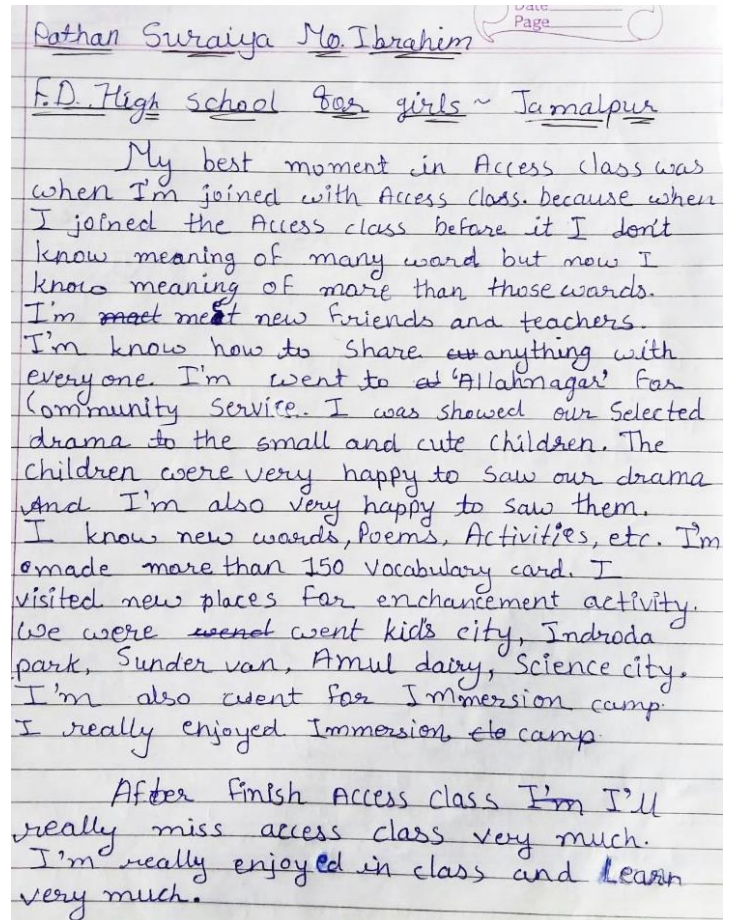 Date
Page
Pathan Suraiya Mo. Ibrahim
F.D. High school for girls ~ Jamalpur
My best moment in Access class was
when I'm joined with Access class. because when
I joined the Access class before it I don't
know meaning of many word but now I
know meaning of more than those words.
I'm meet new friends and teachers.
I'm know how to share anything with
everyone. I'm went to 'Allahnagar' For
Community Service. I was showed our Selected
drama to the small and cute children. The
children were very happy to saw our drama
And I'm also very happy to saw them.
I know new words, Poems, Activities, etc. I'm
made more than 150 vocabulary card. I
visited new places for enchancement activity.
We were went kid's city, Indroda
park, Sunder van, Amul dairy, Science city.
I'm also went for Immersion camp.
I really enjoyed Immersion camp.
After finish Access class I'll
really miss access class very much.
I'm really enjoyed in class and Learn
very much.